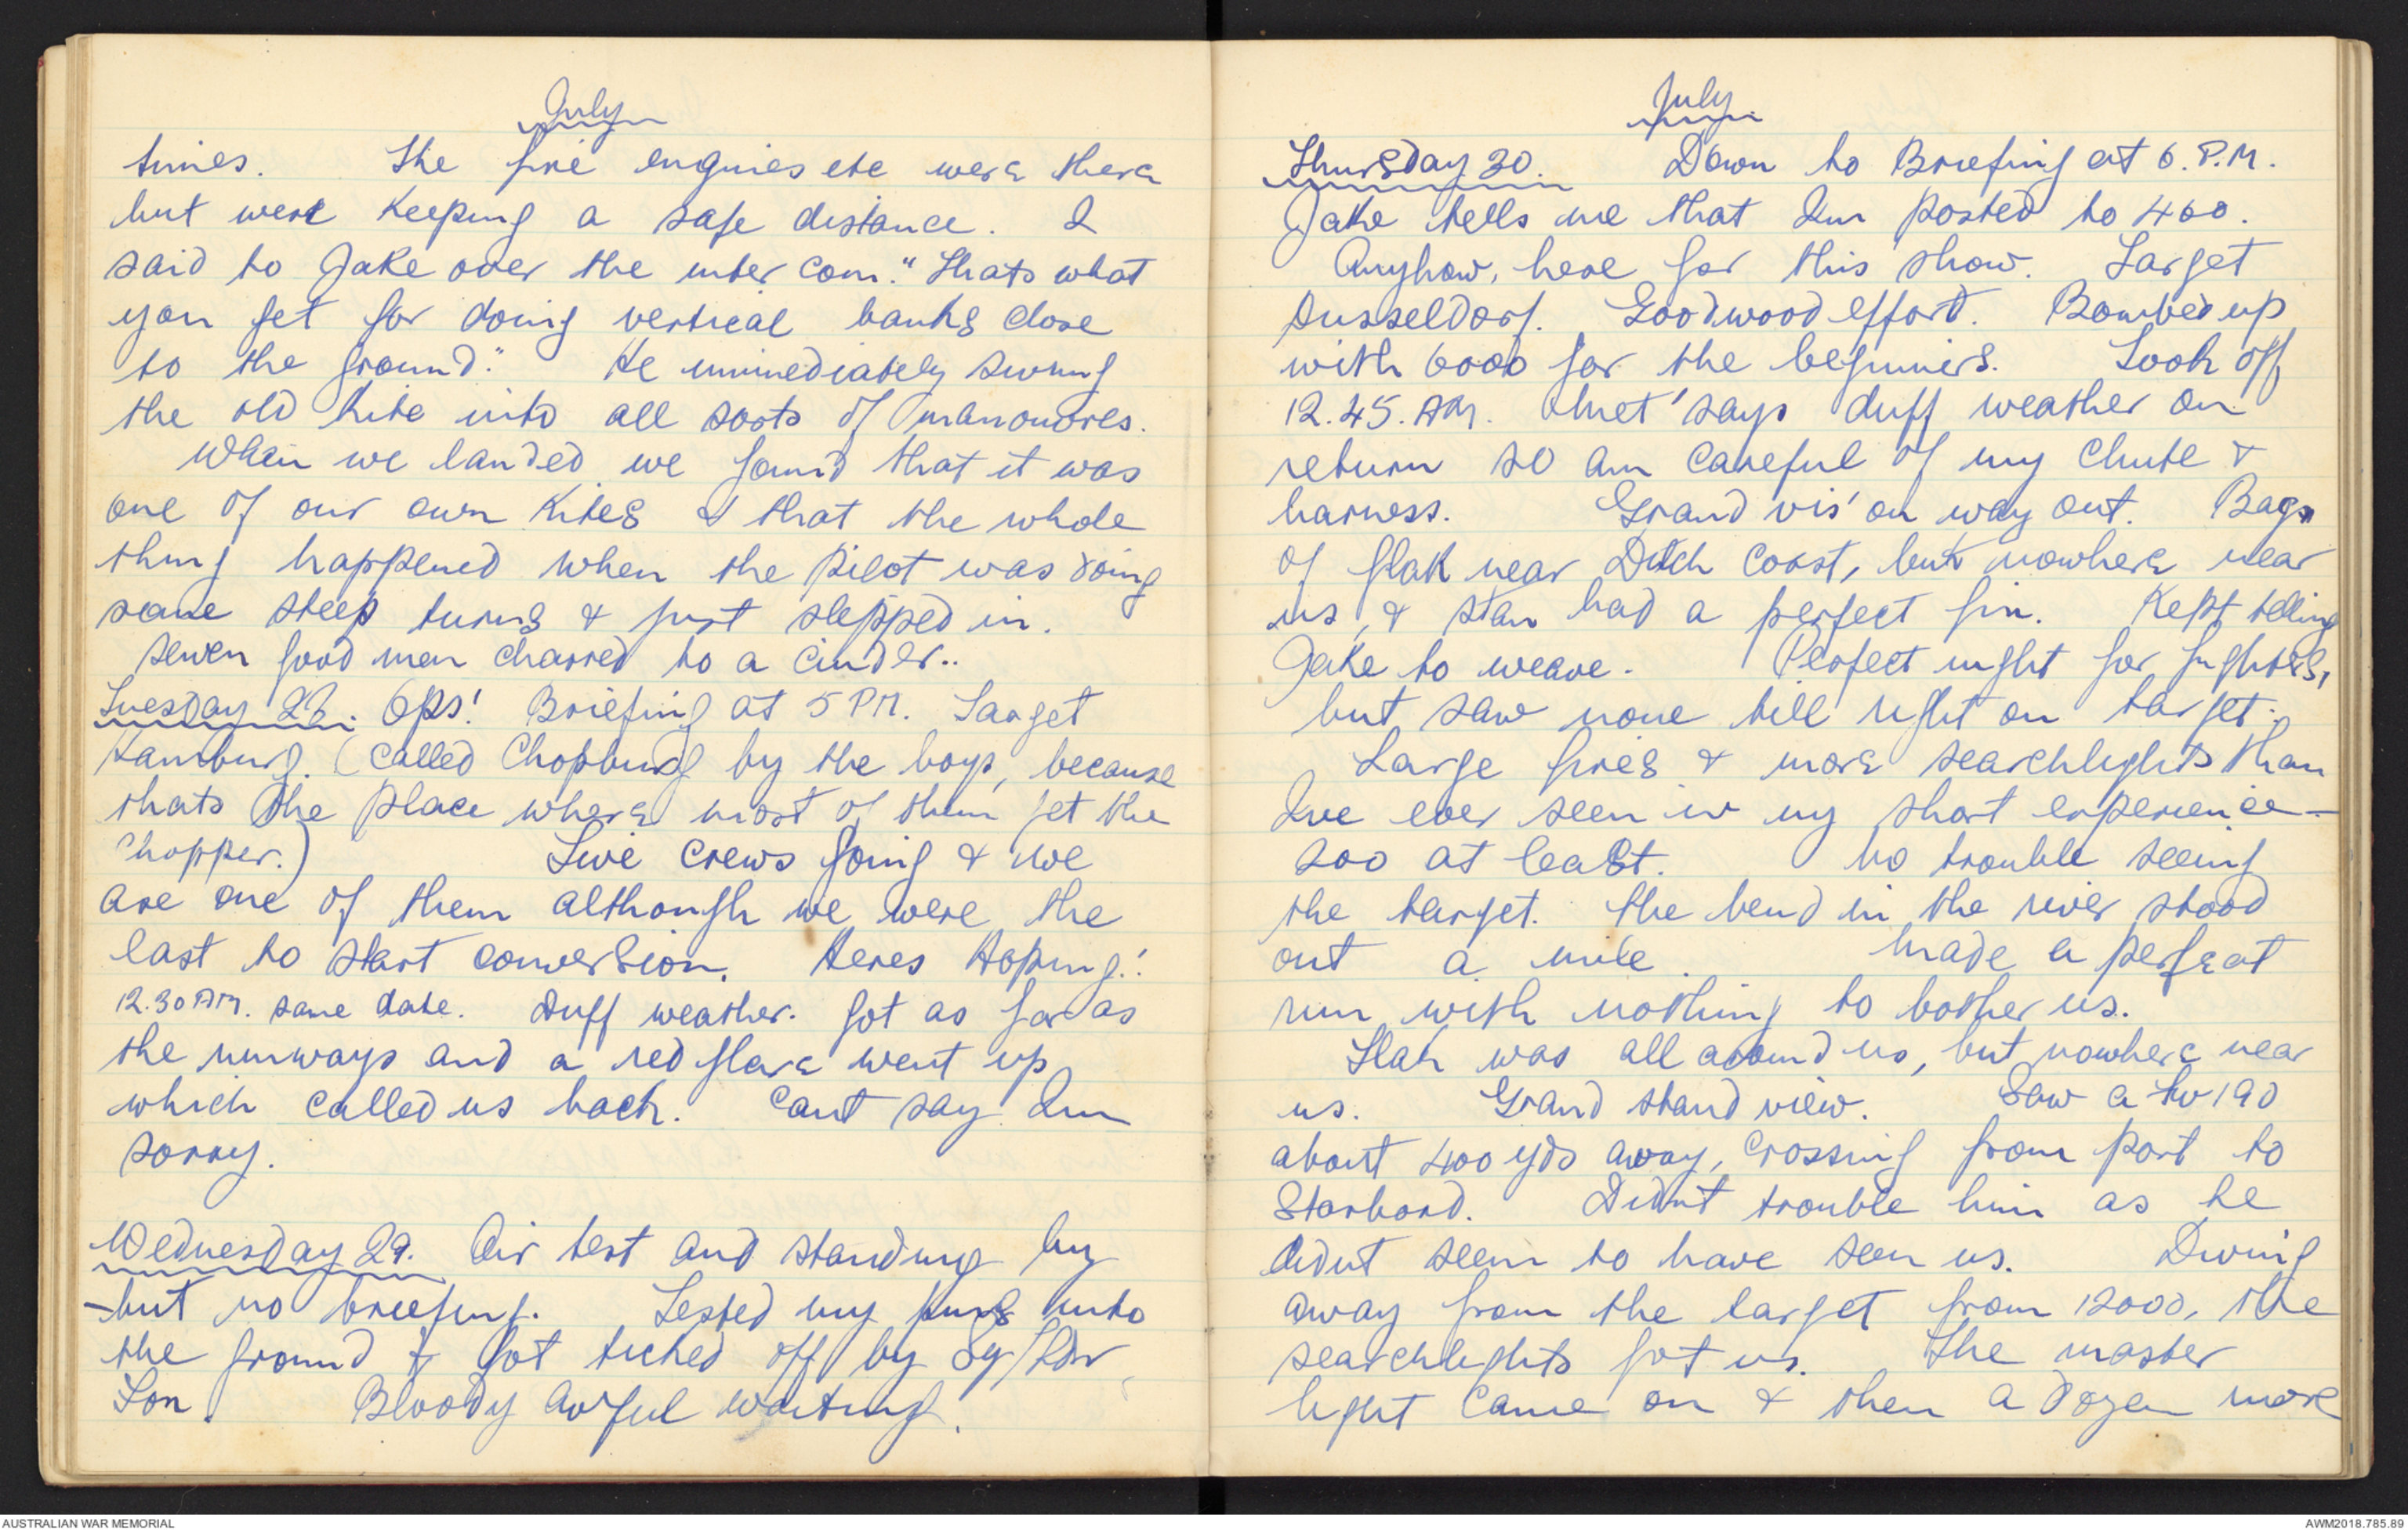 July
times. The fire engines etc were there
but were keeping a safe distance. I
said to Jake over the inter com." Thats what
you get for doing vertical banks close
to the ground." He immediately swung
the old kite into all sorts of manouvres.
When we landed we found that it was
one of our own kites & that the whole
thing happened when the pilot was doing
some steep turns & just slipped in.
Seven good men charred to a cinder..
Tuesday 28. Ops! Briefing at 5 PM. Target
Hamburg. (Called Chopburg by the boys, because
thats the place where most of them get the
chopper.) Five crews going & we
are one of them although we were the
last to start conversion. Heres Hoping.!
12.30 AM. same date. Duff weather. Got as far as
the runways and a red flare went up
which called us back. Cant say Im
sorry.
Wednesday 29. Air test and standing by
- but no briefing. Tested my guns into
the ground & got ticked off by Sq/Ldr
Bloody awful waiting.
July.
Thursday 30. Down to Briefing at 6.P.M.
Jake tells me that Im posted to 460.
Anyhow, here for this show. Target
Dusseldorf. Goodwood effort. Bombed up
with 6000 for the beginners. Took off
12.45. AM. 'Met' says duff weather on
return so am careful of my chute &
harness. Grand vis' on way out. Bags
of flak near Dutch Coast, but nowhere near
us, & Stan had a perfect fix. Kept telling
Jake to weave. Perfect night for fighters,
but saw none till right on target.
Large fires & more searchlights than
Ive ever seen in my short experience -
200 at least. No trouble seeing
the target. The bend in the river stood
out a mile. Made a perfect
run with nothing to bother us.
Flak was all around us, but nowhere near
us. Grand stand view. Saw a Fw 190
about 400 yds away, crossing from port to
Starbord. Didnt trouble him as he
didnt seem to have seen us. Diving
away from the target from 12000, the
searchlights got us. The master
light came on & then a dozen more
AUSTRALIAN WAR MEMORIAL
AWM2018.785.89